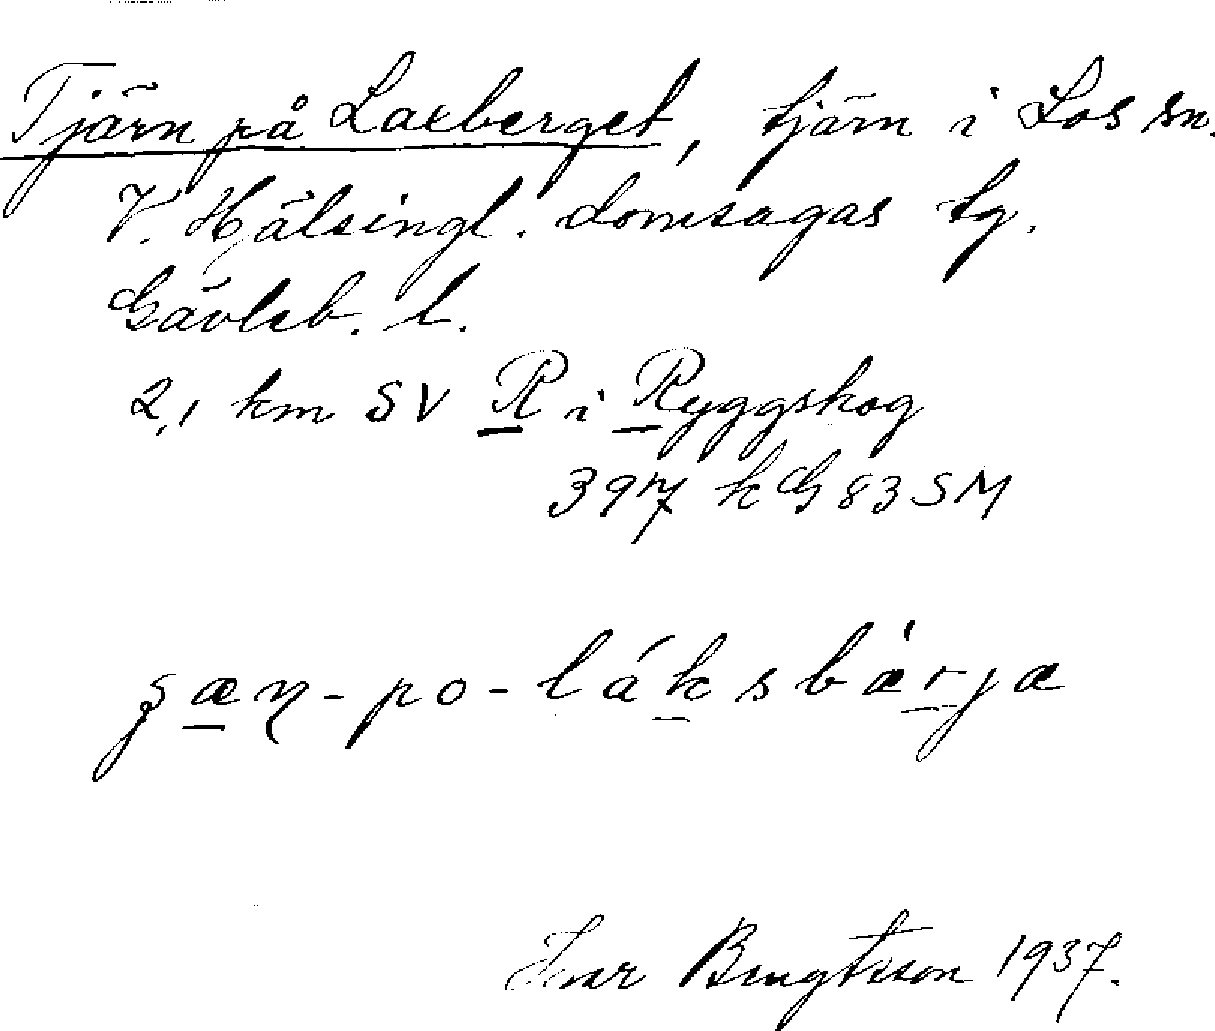 Tjärn på Laxberget, tjärn i Los sn.
V. Hälsingl. domsagas tg.
Gävleb. l.
2,1 km SV R i Ryggskog
397 k G 83 SM
-po-láksbàrja
Ivar Bengtsson 1937.